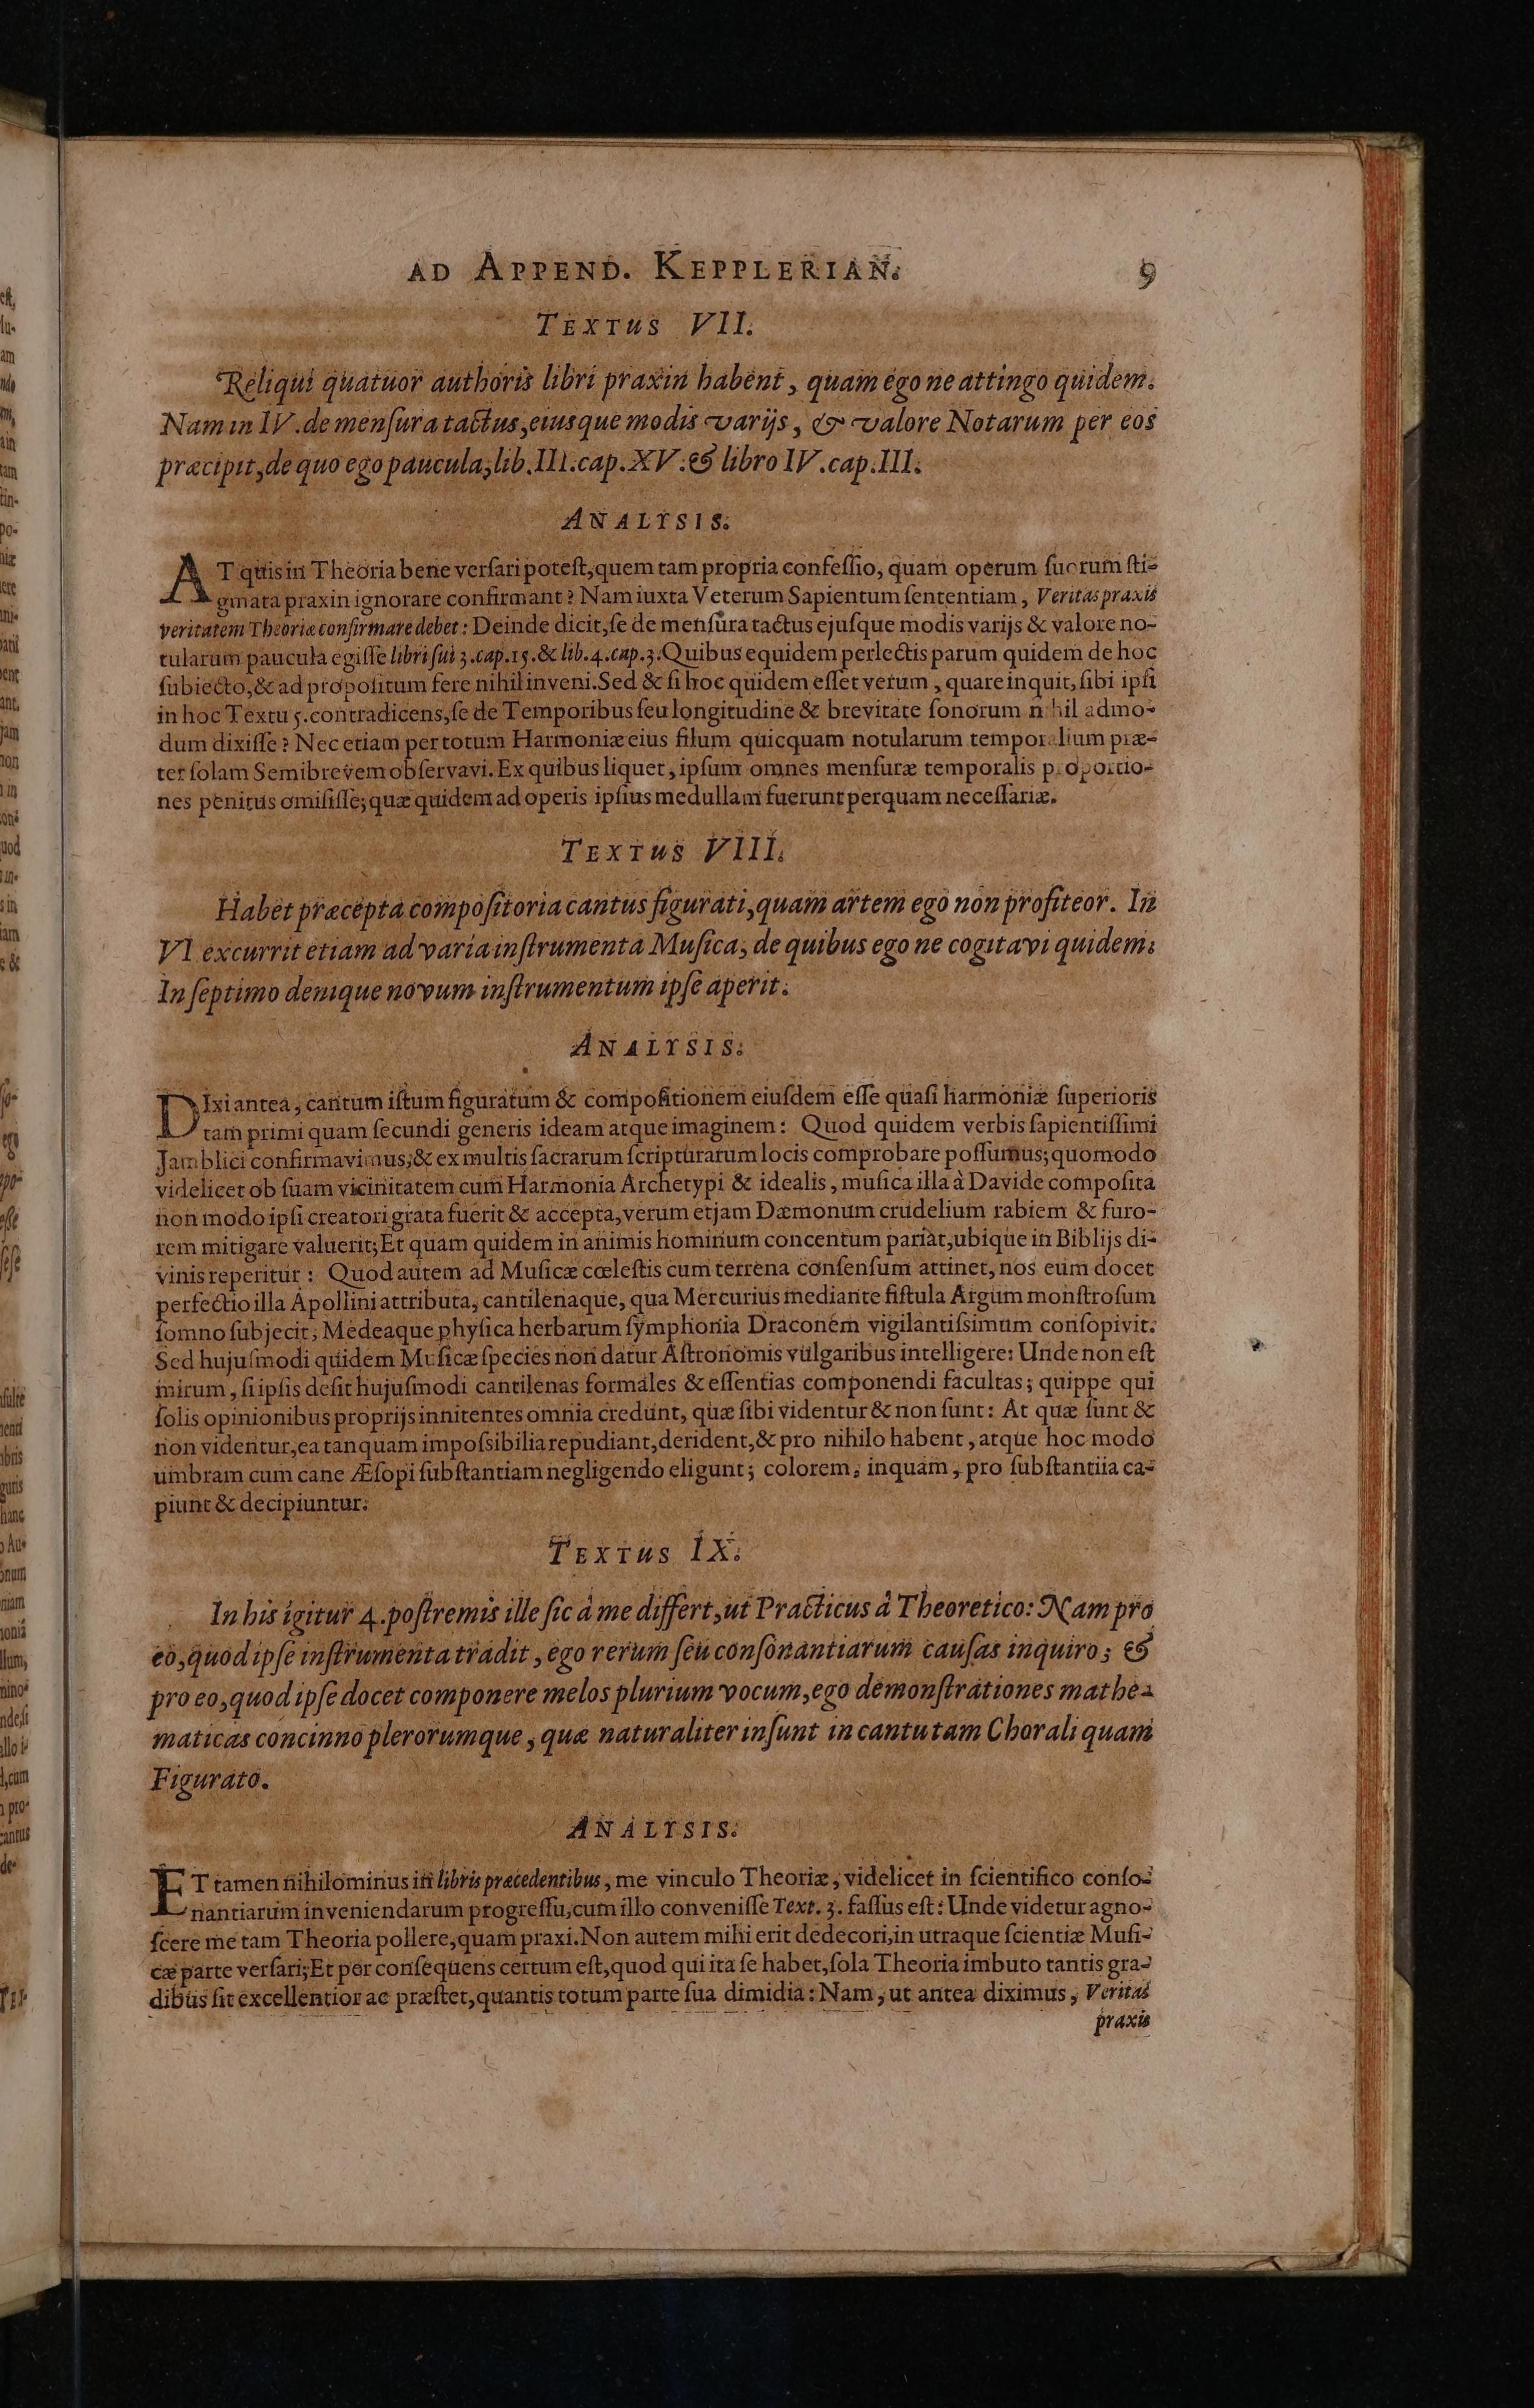 AD APPEND. KEPPLERIAN. 9
TEXTUS VII.
Reliqui quatuor authoris libri praxin habent, quam ego ne attingo quidem.
Nam in IV. de mensura tactus, eiusque modis varijs, & valore Notarum per eos
præcipit, de quo ego paucula, lib. III. cap. XV. & libro IV. cap. III.
ANALYSIS.
AT quis in Theoria bene versari potest, quem tam propria confessio, quam operum suorum sti-
gmata praxin ignorare confirmant? Nam iuxta Veterum Sapientum sententiam, Veritas praxis
veritatem Theoriæ confirmare debet: Deinde dicit, se de mensura tactus ejusque modis varijs & valore no-
tularum paucula egisse libri sui 3. cap. 15. & lib. 4. cap. 3. Quibus equidem perlectis parum quidem de hoc
subiecto, & ad propositum fere nihil inveni. Sed & si hoc quidem esset verum, quare inquit, sibi ipsi
in hoc Textu 5. contradicens, se de Temporibus seu longitudine & brevitate sonorum nihil admo-
dum dixisse? Nec etiam per totum Harmoniæ eius filum quicquam notularum temporalium præ-
ter solam Semibrevem observavi. Ex quibus liquet, ipsum omnes mensuræ temporalis proportio-
nes penitus omisisse; quæ quidem ad operis ipsius medullam fuerunt perquam necessariæ.
TEXTUS VIII.
Habet præcepta compositoria cantus figurati, quam artem ego non profiteor. In
VI excurrit etiam ad varia instrumenta Musica, de quibus ego ne cogitavi quidem.
In septimo denique novum instrumentum ipse aperit.
ANALYSIS.
DIxi antea, cantum istum figuratum & compositionem eiusdem esse quasi harmoniæ superioris
tam primi quam secundi generis ideam atque imaginem: Quod quidem verbis sapientissimi
Jamblici confirmavimus; & ex multis sacrarum scripturarum locis comprobare possumus; quomodo
videlicet ob suam vicinitatem cum Harmonia Archetypi & idealis, musica illa à Davide composita
non modo ipsi creatori grata fuerit & accepta, verum etjam Dæmonum crudelium rabiem & furo-
rem mitigare valuerit; Et quam quidem in animis hominum concentum pariat, ubique in Biblijs di-
vinis reperitur: Quod autem ad Musicæ cœlestis cum terrena consensum attinet, nos eum docet
perfectio illa Apollini attributa, cantilenaque, qua Mercurius mediante fistula Argum monstrosum
somno subjecit; Medeaque physica herbarum symphonia Draconem vigilantissimum consopivit.
Sed hujusmodi quidem Musicæ species non datur Astronomis vulgaribus intelligere: Unde non est
mirum, si ipsis desit hujusmodi cantilenas formales & essentias componendi facultas; quippe qui
solis opinionibus proprijs innitentes omnia credunt, quæ sibi videntur & non sunt: At quæ sunt &
non videntur, ea tanquam impossibilia repudiant, derident, & pro nihilo habent, atque hoc modo
umbram cum cane Æsopi substantiam negligendo eligunt; colorem, inquam, pro substantiia ca-
piunt & decipiuntur.
TEXTUS IX.
In his igitur 4. postremis ille sic à me differt, ut Practicus à Theoretico: Nam pro
eo, quod ipse instrumenta tradit, ego rerum seu consonantiarum causas inquiro; &
pro eo, quod ipse docet componere melos plurium vocum, ego demonstrationes mathe-
maticas concinno plerorumque, quæ naturaliter insunt in cantu tam Chorali quam
Figurato.
ANALYSIS.
ET tamen nihilominus in libris præcedentibus, me vinculo Theoriæ, videlicet in scientifico conso-
nantiarum inveniendarum progressu, cum illo convenisse Text. 3. fassus est: Unde videtur agno-
scere me tam Theoria pollere, quam praxi. Non autem mihi erit dedecori, in utraque scientiæ Musi-
cæ parte versari; Et per consequens certum est, quod qui ita se habet, sola Theoria imbuto tantis gra-
dibus sit excellentior ac præstet, quantis totum parte sua dimidia: Nam, ut antea diximus, Veritas
praxis